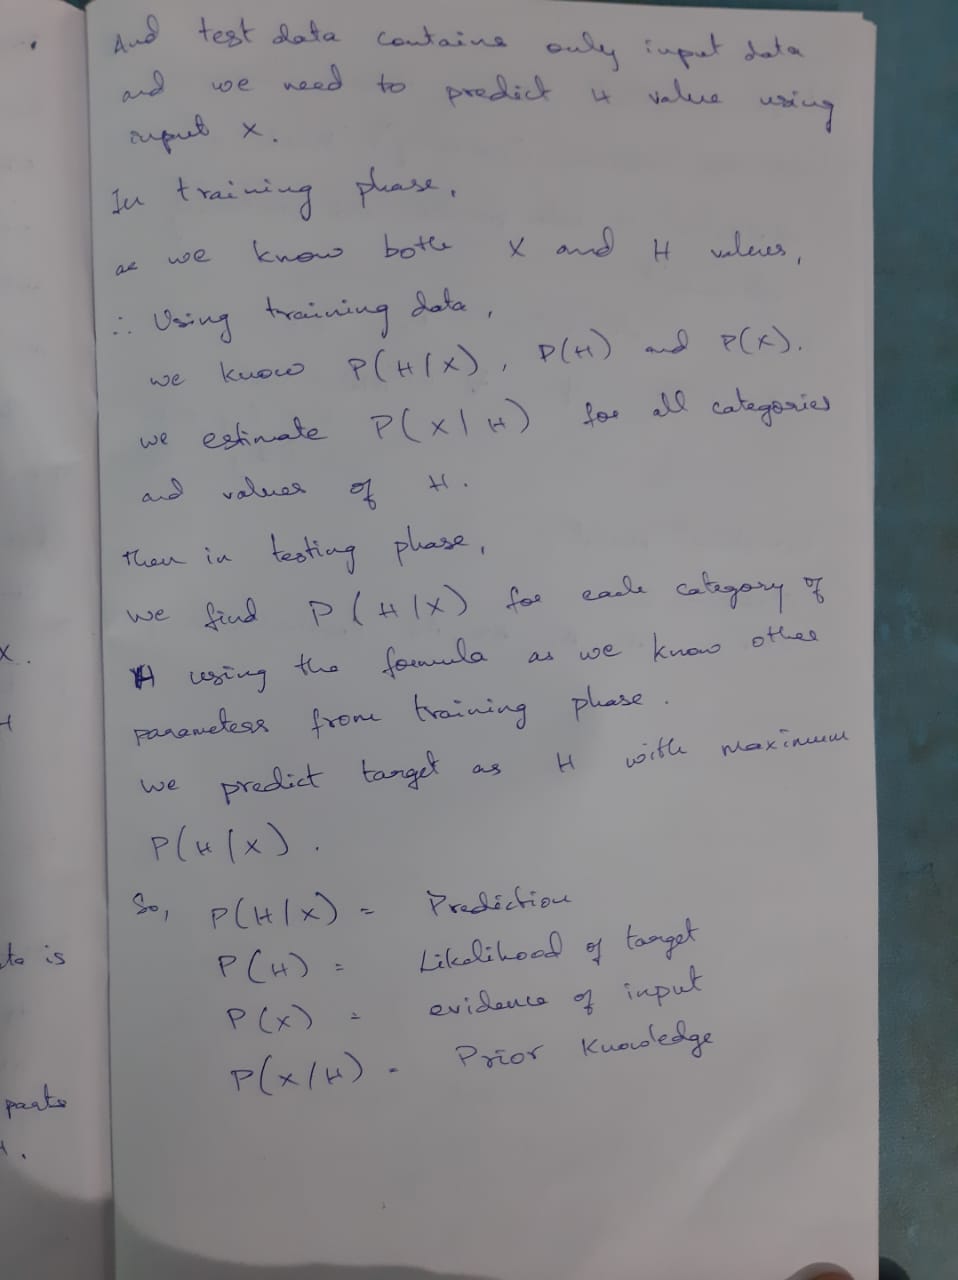 And test data contains only input data
and we need to predict H value using
input X.
In training phase,
as we know both X and H values,
∴ Using training data,
we know P(H/X), P(H) and P(X).
we estimate P(X/H) for all categories
and values of H.
Then in testing phase,
we find P(H/X) for each category of
H using the formula as we know other
parameters from training phase.
we predict target as H with maximum
P(H/X).
So, P(H/X) = Prediction
P(H) = Likelihood of target
P(X) = evidence of input
P(X/H) = Prior Knowledge
X.
H
is
parts